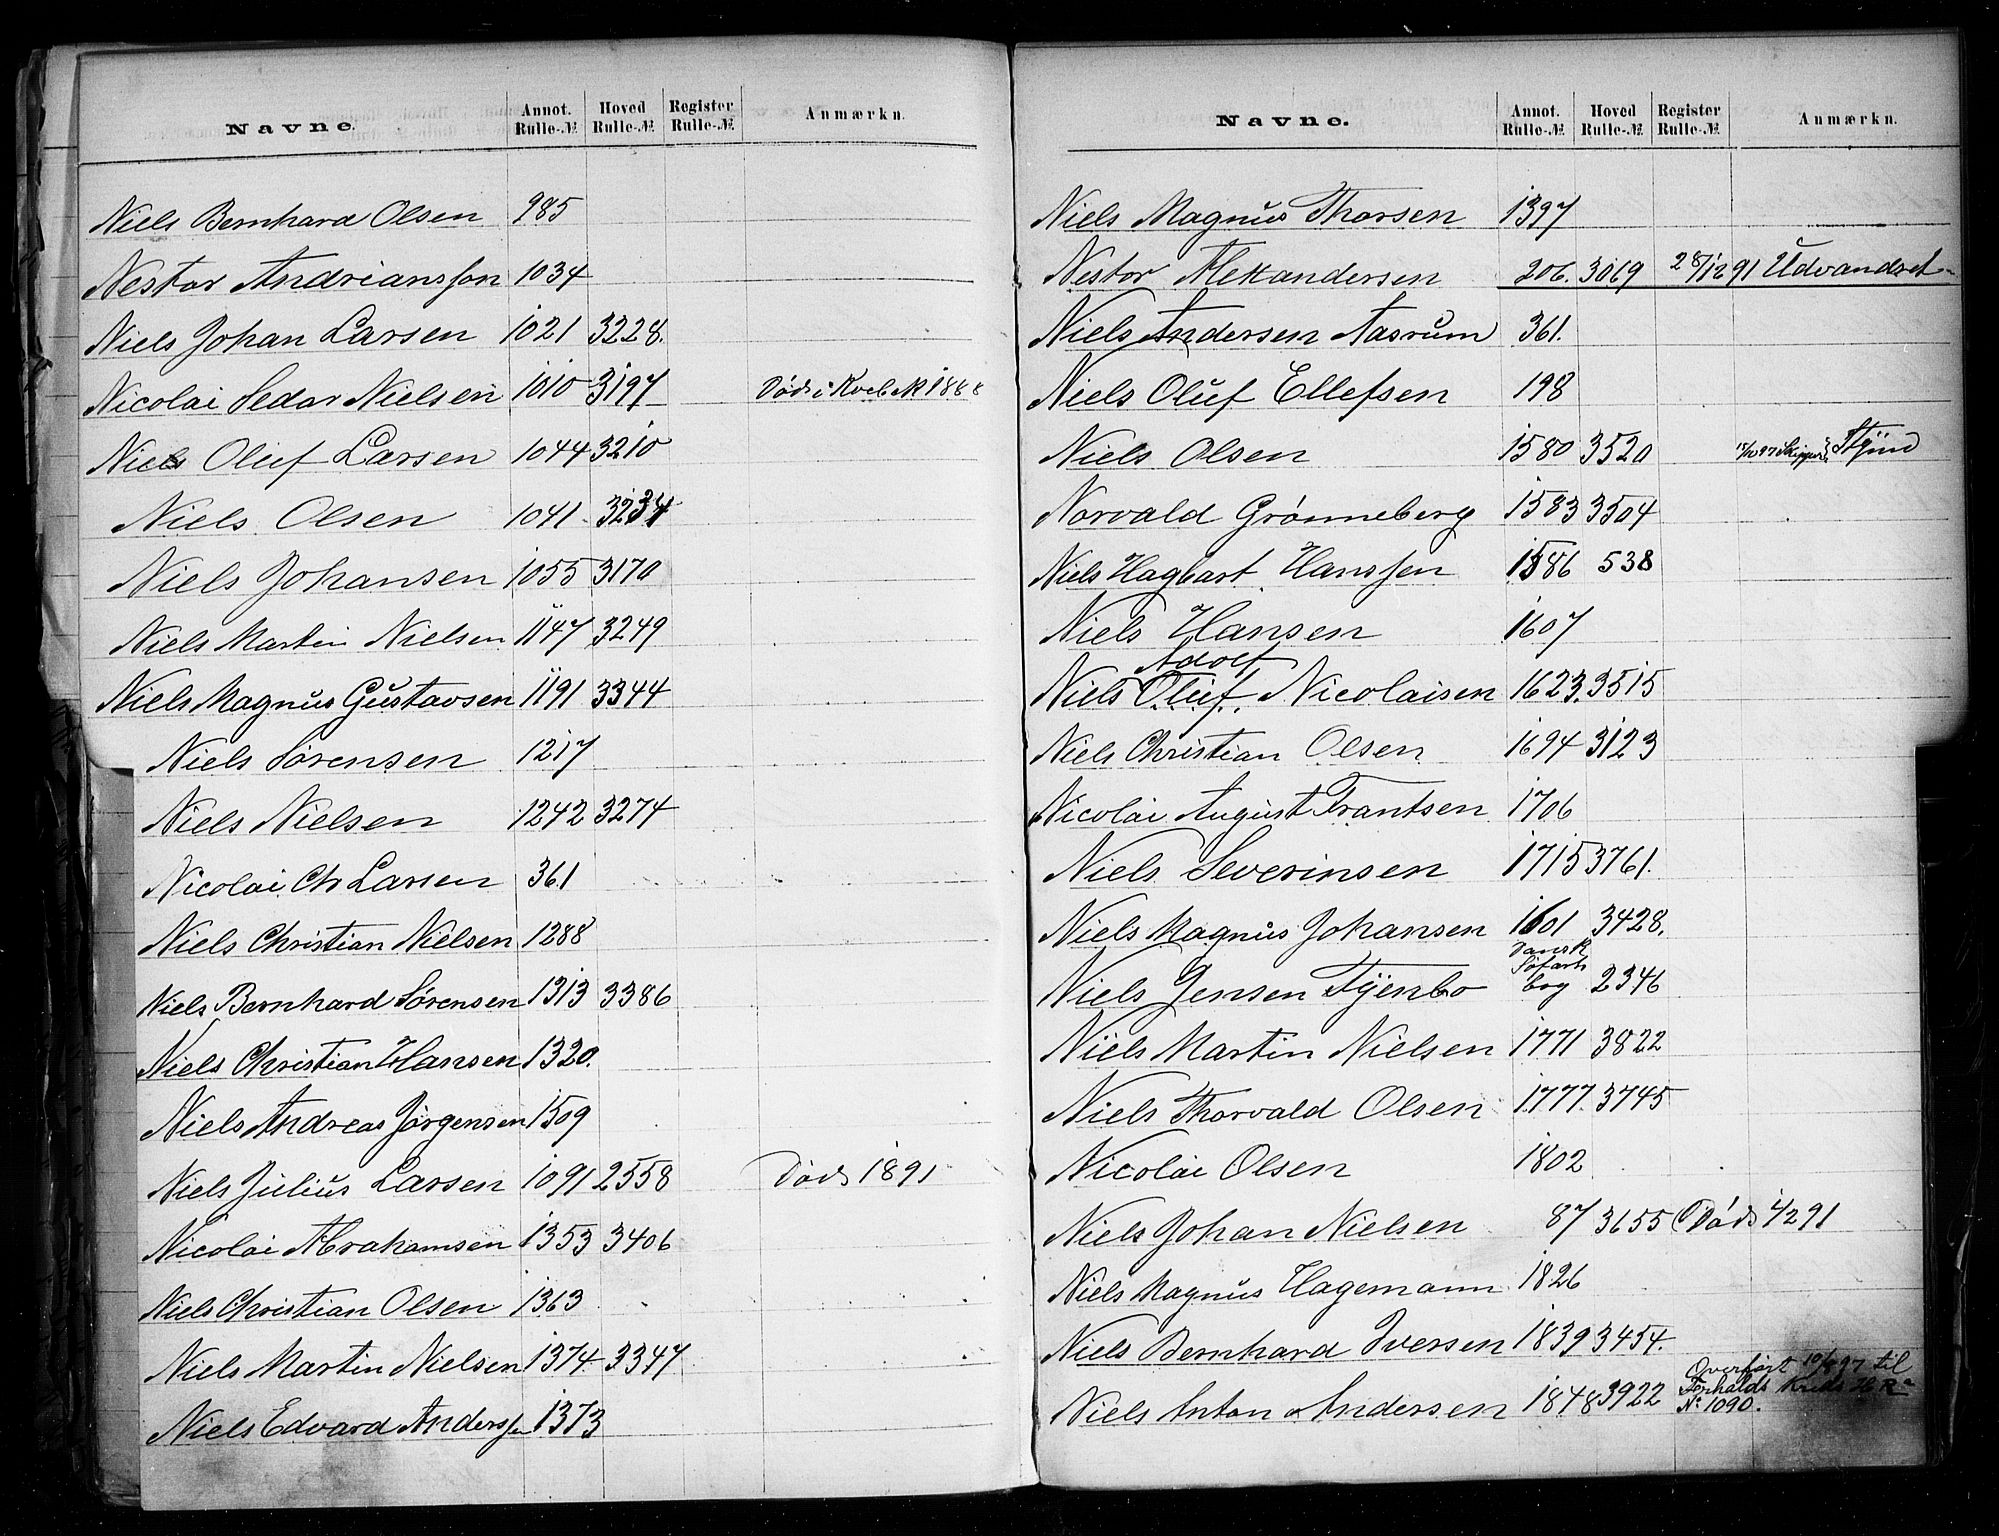 Navne. Annot. Rulle-№ Hoved Rulle-№ Register Rulle-№ Anmærkn.
Niels Bernhard Olsen 985
Nestor Andrianssen 1034
Niels Johan Larsen 1021 3228.
Nicolai Sedar Nielsen 1010 3197 Död i 1888
Niels Oluf Larsen 1044 3210
Niels Olsen 1041 3234
Niels Johansen 1055 3170
Niels Martin Nielsen 1147 3249
Niels Magnus Gustavsen 1191 3344
Niels Sörensen 1217
Niels Nielsen 1242 3274
Nicolai Chr Larsen 361
Niels Christian Nielsen 1288
Niels Bernhard Sörensen 1313 3386
Niels Christian Hansen 1320.
Niels Andreas Jörgensen 1509
Niels Julius Larsen 1091 2558 Död 1891
Nicolai Abrahamsen 1353 3406
Niels Christian Olsen 1363
Niels Martin Nielsen 1374 3347
Niels Edvard Anderssen 1373
Navne. Annot. Rulle-№ Hoved Rulle-№ Register Rulle-№ Anmærkn.
Niels Magnus Thorsen 1397
Nestor Alexandersen 206. 3069 28/12 91 Udvandret
Niels Andersen Aasrum 361.
Niels Oluf Ellefsen 198
Niels Olsen 1580 3520 97 Skipper
Norvald Grönneberg 1583 3504
Niels Hagbart Hanssen 1586 538
Niels Hansen 1607
Adolf
Niels Oluf Nicolaisen 1623. 3515
Niels Christian Olsen 1694 3123
Nicolai August Frantsen 1706
Niels Severinsen 1715 3761.
Niels Magnus Johansen 1601 3428.
Dansk
Söfarts
Niels Jensen Tyenbo bog 2346
Niels Martin Nielsen 1771 3822
Niels Thorvald Olsen 1777. 3745
Nicolai Olsen 1802
Niels Johan Nielsen 87 3655 Död 1/2 91
Niels Magnus Hagemann 1826
Niels Bernhard Iversen 1839 3454.
Overfört 97 til
Kreds
Niels Anton Andersen 1848 3922 № 1090.